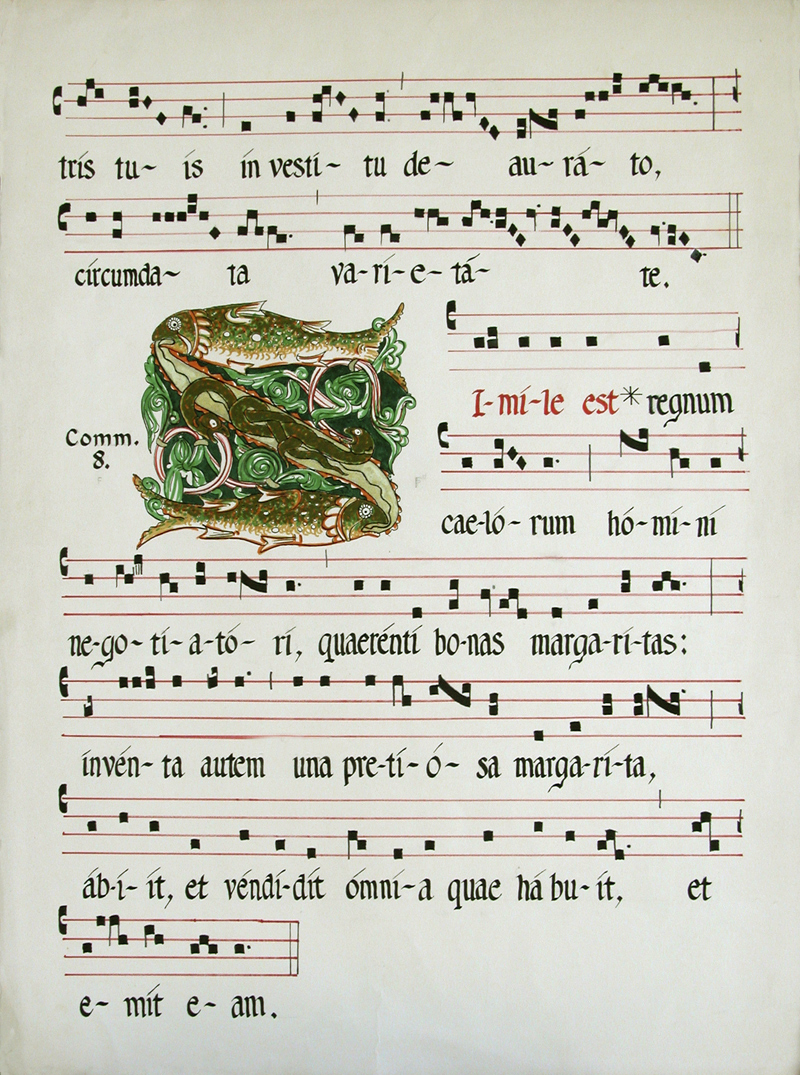 tris tu~ is in vesti- tu de~ au- rá- to,
circumda~ ta va-ri-e-tá- te.
I-mi-le est * regnum
Comm.
8.
cae-ló-rum hó-mi-ni
ne-go-ti-a-tó-ri, quaerénti bo-nas marga-ri-tas:
invén-ta autem una pre-ti-ó-sa marga-rí-ta,
áb-i-it, et véndi-dit ómni-a quae há bu-it, et
e~ mit e- am.